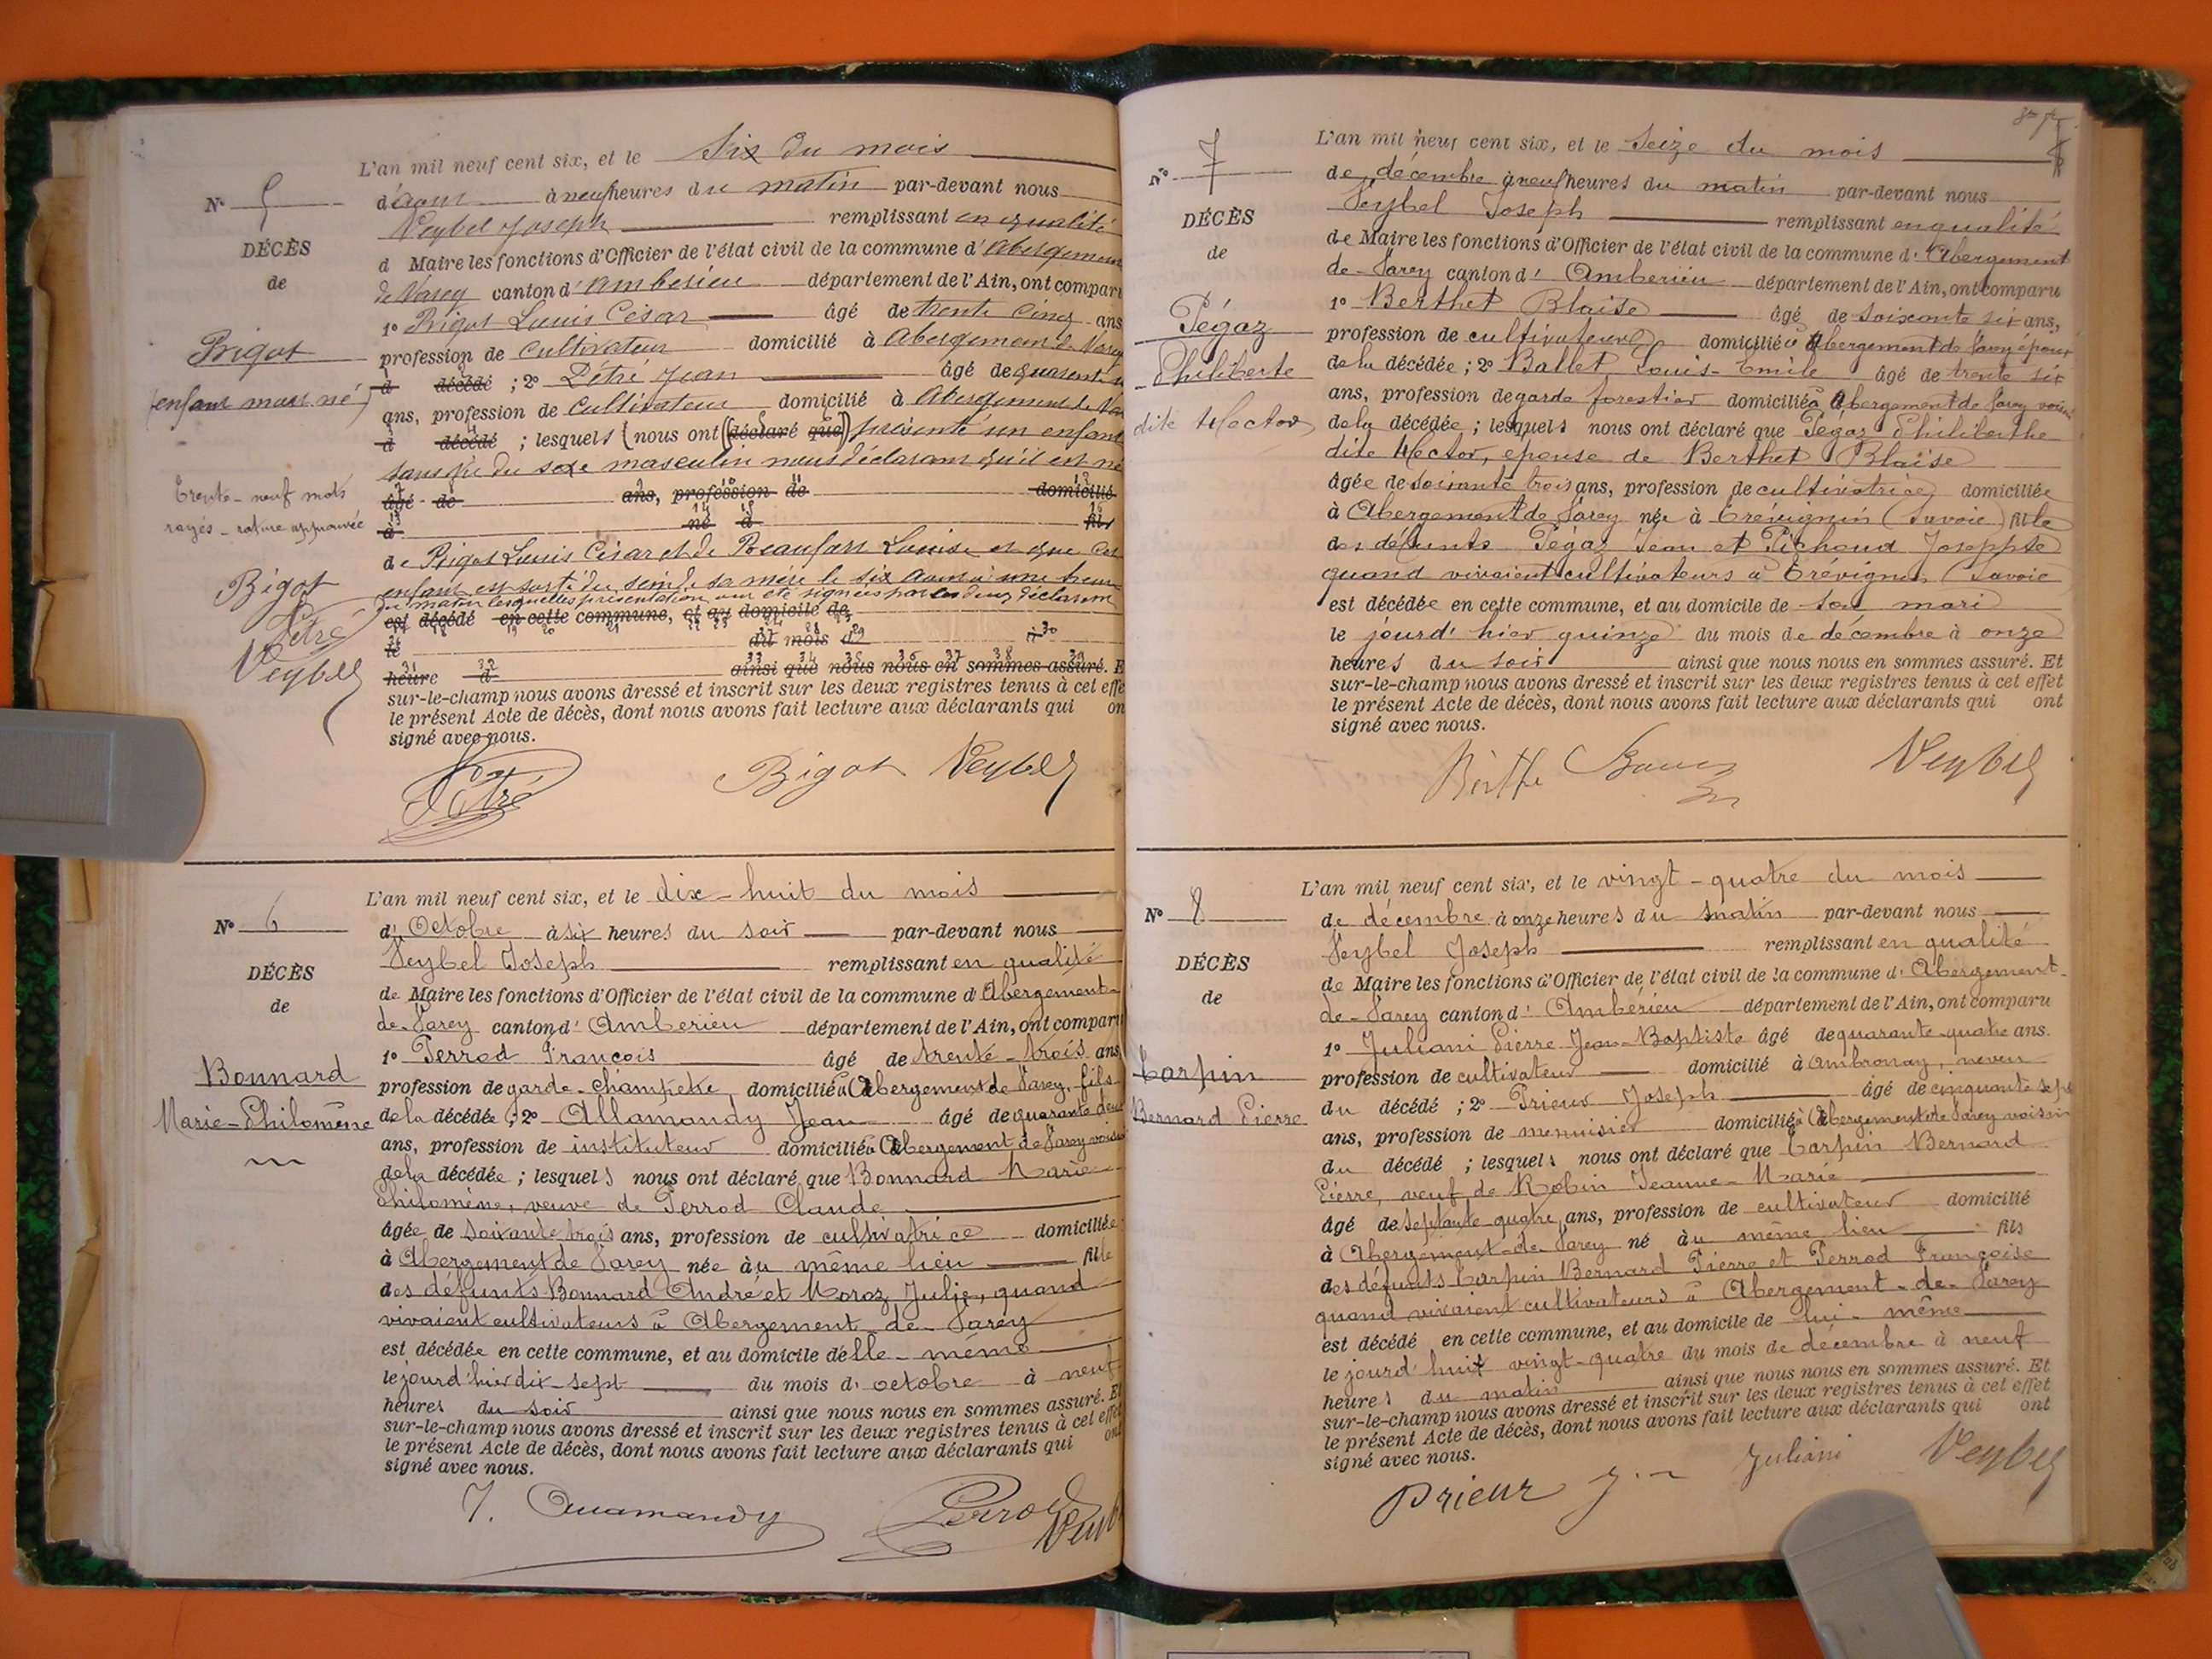 L'an mil neuf cent six, et le Six du mois
N° 5
d'aout à neuf heures du matin par-devant nous
Veybel Joseph remplissant en qualité
DÉCÈS
d Maire les fonctions d'Officier de l'état civil de la commune d'Abergement
de
de Varey canton d'Ambérieu département de l'Ain, ont compar
1° Bigot Louis César âgé de trente cinq ans
Bigot
profession de Cultivateur domicilié à Abergement de Varey
(enfant mort né)
à décédé ; 2° Pétré Jean âgé de quarante
ans, profession de Cultivateur domicilié à Abergement de Va
d décédé ; lesquels (nous ont (déclaré que)) présenté un enfant
sans vie du sexe masculin nous déclarant qu'il est né
Trente-neuf mots
âgé de ans, profession de domicilié
rayés - rature approuvée
à né à fils
de Bigot Louis César et de Beaufort Louise et que cet
Bigot
enfant est sorti du sein de sa mère le six aout à une heure
du matin lesquelles présentation ont été signées par les deux déclarants
Pétré
est décédé en cette commune, et au domicile de
Veybel
le dit mois d à
heure d ainsi que nous nous en sommes assuré. E
sur-le-champ nous avons dressé et inscrit sur les deux registres tenus à cet effe
le présent Acte de décès, dont nous avons fait lecture aux déclarants qui on
signé avec nous.
Pétré Bigot Veybel
L'an mil neuf cent six, et le dix-huit du mois
N° 6
d'Octobre à six heures du soir par-devant nous
Veybel Joseph remplissant en qualité
DÉCÈS
de Maire les fonctions d'Officier de l'état civil de la commune d'Abergement-
de
de-Varey canton d'Ambérieu département de l'Ain, ont compar
1° Perrod François âgé de trente-trois ans
Bonnard
profession de garde-champêtre, domicilié à Abergement de Varey, fils
Marie-Philomène
de la décédée ; 2° Allamandy Jean âgé de quarante deux
ans, profession de instituteur domicilié à Abergement de Varey voisin
de la décédée ; lesquels nous ont déclaré que Bonnard Marie
Philomène, veuve de Perrod Claude
âgée de soixante trois ans, profession de cultivatrice domiciliée
à Abergement de Varey née au même lieu fille
des défunts Bonnard André et Moroz Julie, quand
vivaient cultivateurs à Abergement-de-Varey
est décédée en cette commune, et au domicile d'elle-même
le jourd'hier dix-sept du mois d'octobre à neuf
heures du soir ainsi que nous nous en sommes assuré. Et
sur-le-champ nous avons dressé et inscrit sur les deux registres tenus à cet effet
le présent Acte de décès, dont nous avons fait lecture aux déclarants qui ont
signé avec nous.
J. Allamandy Perrod
L'an mil neuf cent six, et le Seize du mois
N° 7
de décembre à neuf heures du matin par-devant nous
Veybel Joseph remplissant en qualité
DÉCÈS
de Maire les fonctions d'Officier de l'état civil de la commune d'Abergement
de
de-Varey canton d'Ambérieu département de l'Ain, ont comparu
1° Berthet Blaise âgé de soixante six ans,
Pégaz
profession de cultivateur domicilié à Abergement de Varey époux
Philiberte
de la décédée ; 2° Ballet Louis-Emile âgé de trente six
ans, profession de garde forestier domicilié à Abergement de Varey voisin
dite Hector
de la décédée ; lesquels nous ont déclaré que Pégaz Philiberthe
dite Hector, epouse de Berthet Blaise
âgée de soixante trois ans, profession de cultivatrice domiciliée
à Abergement de Varey née à Trévignin (Savoie) fille
des défunts Pégaz Jean et Pichoud Josephte
quand vivaient cultivateurs à Trévignin (Savoie
est décédée en cette commune, et au domicile de son mari
le jourd'hier quinze du mois de décembre à onze
heures du soir ainsi que nous nous en sommes assuré. Et
sur-le-champ nous avons dressé et inscrit sur les deux registres tenus à cet effet
le présent Acte de décès, dont nous avons fait lecture aux déclarants qui ont
signé avec nous.
Veybel
L'an mil neuf cent six, et le vingt-quatre du mois
N° 8
de décembre à onze heures du matin par-devant nous
Veybel Joseph remplissant en qualité
DÉCÈS
de Maire les fonctions d'Officier de l'état civil de la commune d'Abergement-
de
de-Varey canton d'Ambérieu département de l'Ain, ont comparu
1° Juliani Pierre Jean-Baptiste âgé de quarante-quatre ans.
Carpin
profession de cultivateur domicilié à Ambronay, neveu
Bernard Pierre
du décédé ; 2° Prieur Joseph âgé de cinquante sept
ans, profession de menuisier domicilié à Abergement de Varey voisin
du décédé ; lesquels nous ont déclaré que Carpin Bernard
Pierre, veuf de Robin Jeanne-Marie
âgé de septante-quatre ans, profession de cultivateur domicilié
à Abergement-de-Varey né au même lieu fils
des défunts Carpin Bernard Pierre et Perrod Françoise
quand vivaient cultivateurs à Abergement-de-Varey
est décédé en cette commune, et au domicile de lui-même
le jourd'hui vingt-quatre du mois de décembre à neuf
heures du matin ainsi que nous nous en sommes assuré. Et
sur-le-champ nous avons dressé et inscrit sur les deux registres tenus à cet effet
le présent Acte de décès, dont nous avons fait lecture aux déclarants qui ont
signé avec nous.
Prieur J. Juliani Veybel